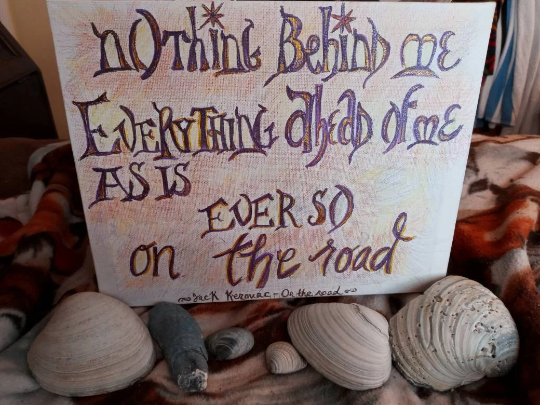 NOTHING BEHIND ME
EVERYTHING AHEAD OF ME
AS IS
EVER SO
on the road
Jack Kerouac - On the road